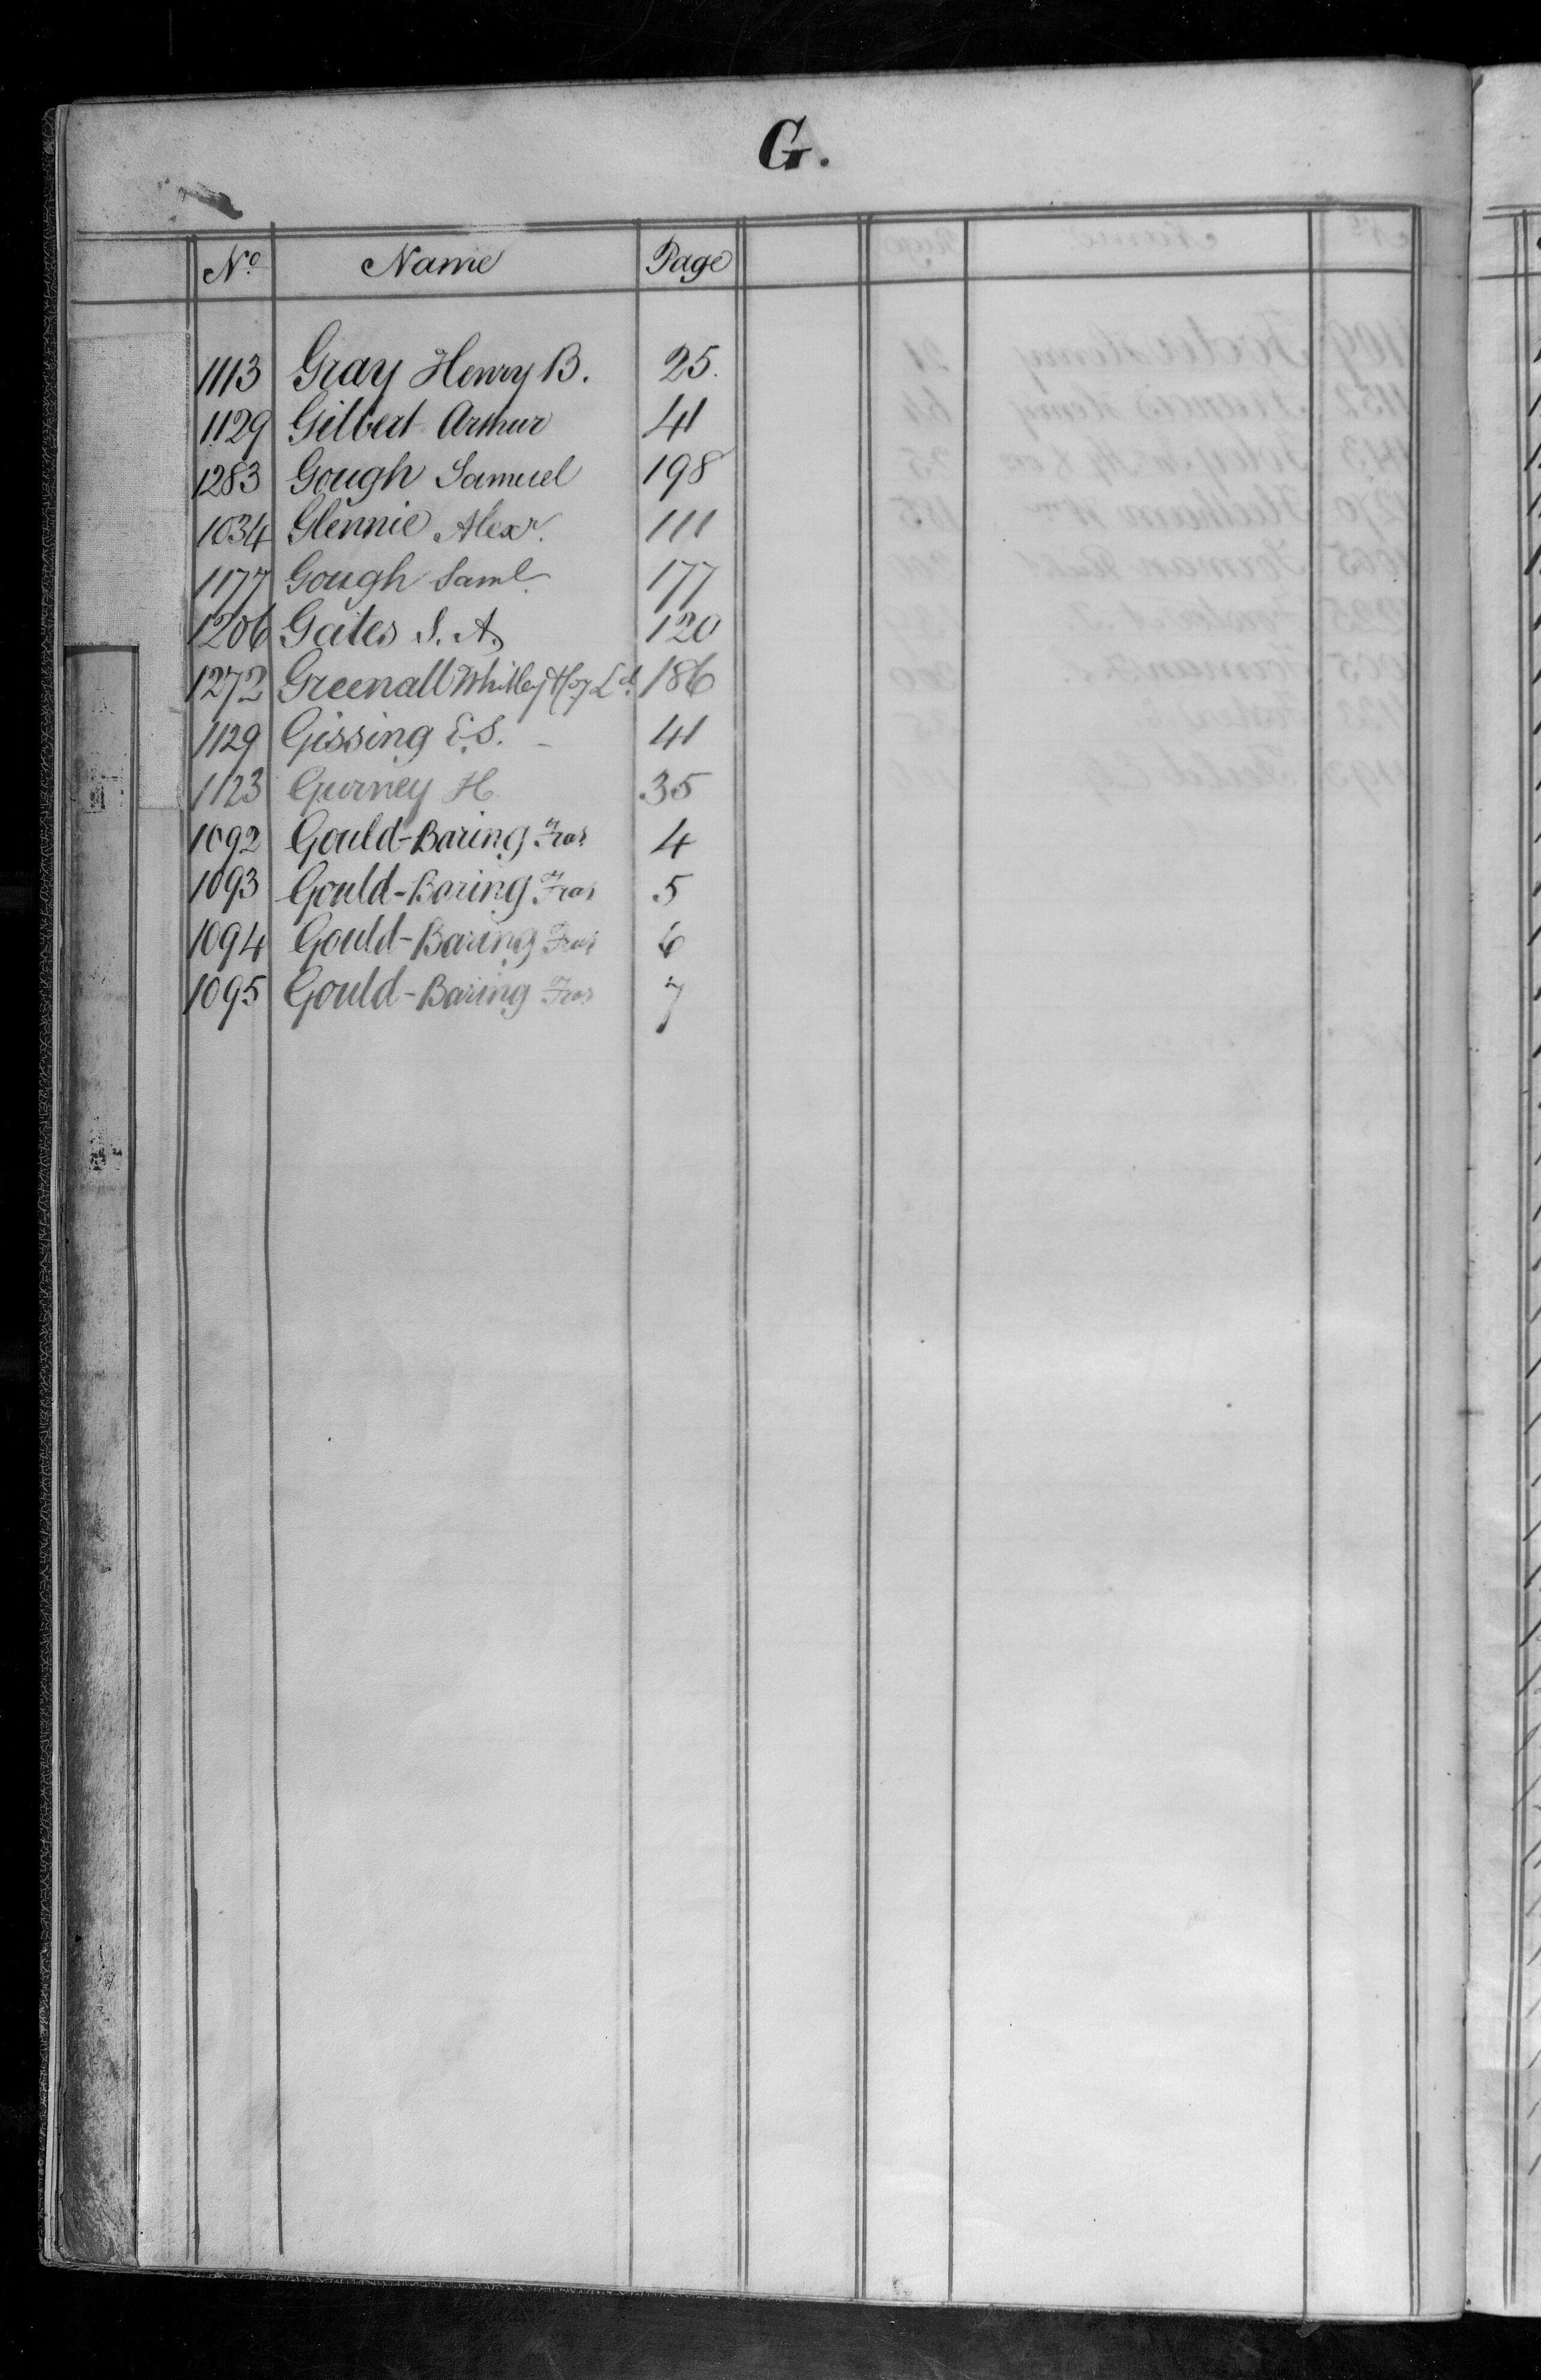 G.
No Name Page
1113 Gray Henry B. 25.
1129 Gilbert Arthur 41
1283 Gough Samuel 198
1034 Glennie Alexr. 111
1177 Gough Saml. 177
1206 Gates S. A. 120
1272 Greenall Whitley & Coy Ld. 186
1129 Gissing E. S. - 41
1123 Gurney H. 35
1092 Gould-Baring Fras 4
1093 Gould-Baring Fras 5
1094 Gould-Baring Fras 6
1095 Gould-Baring Fras 7